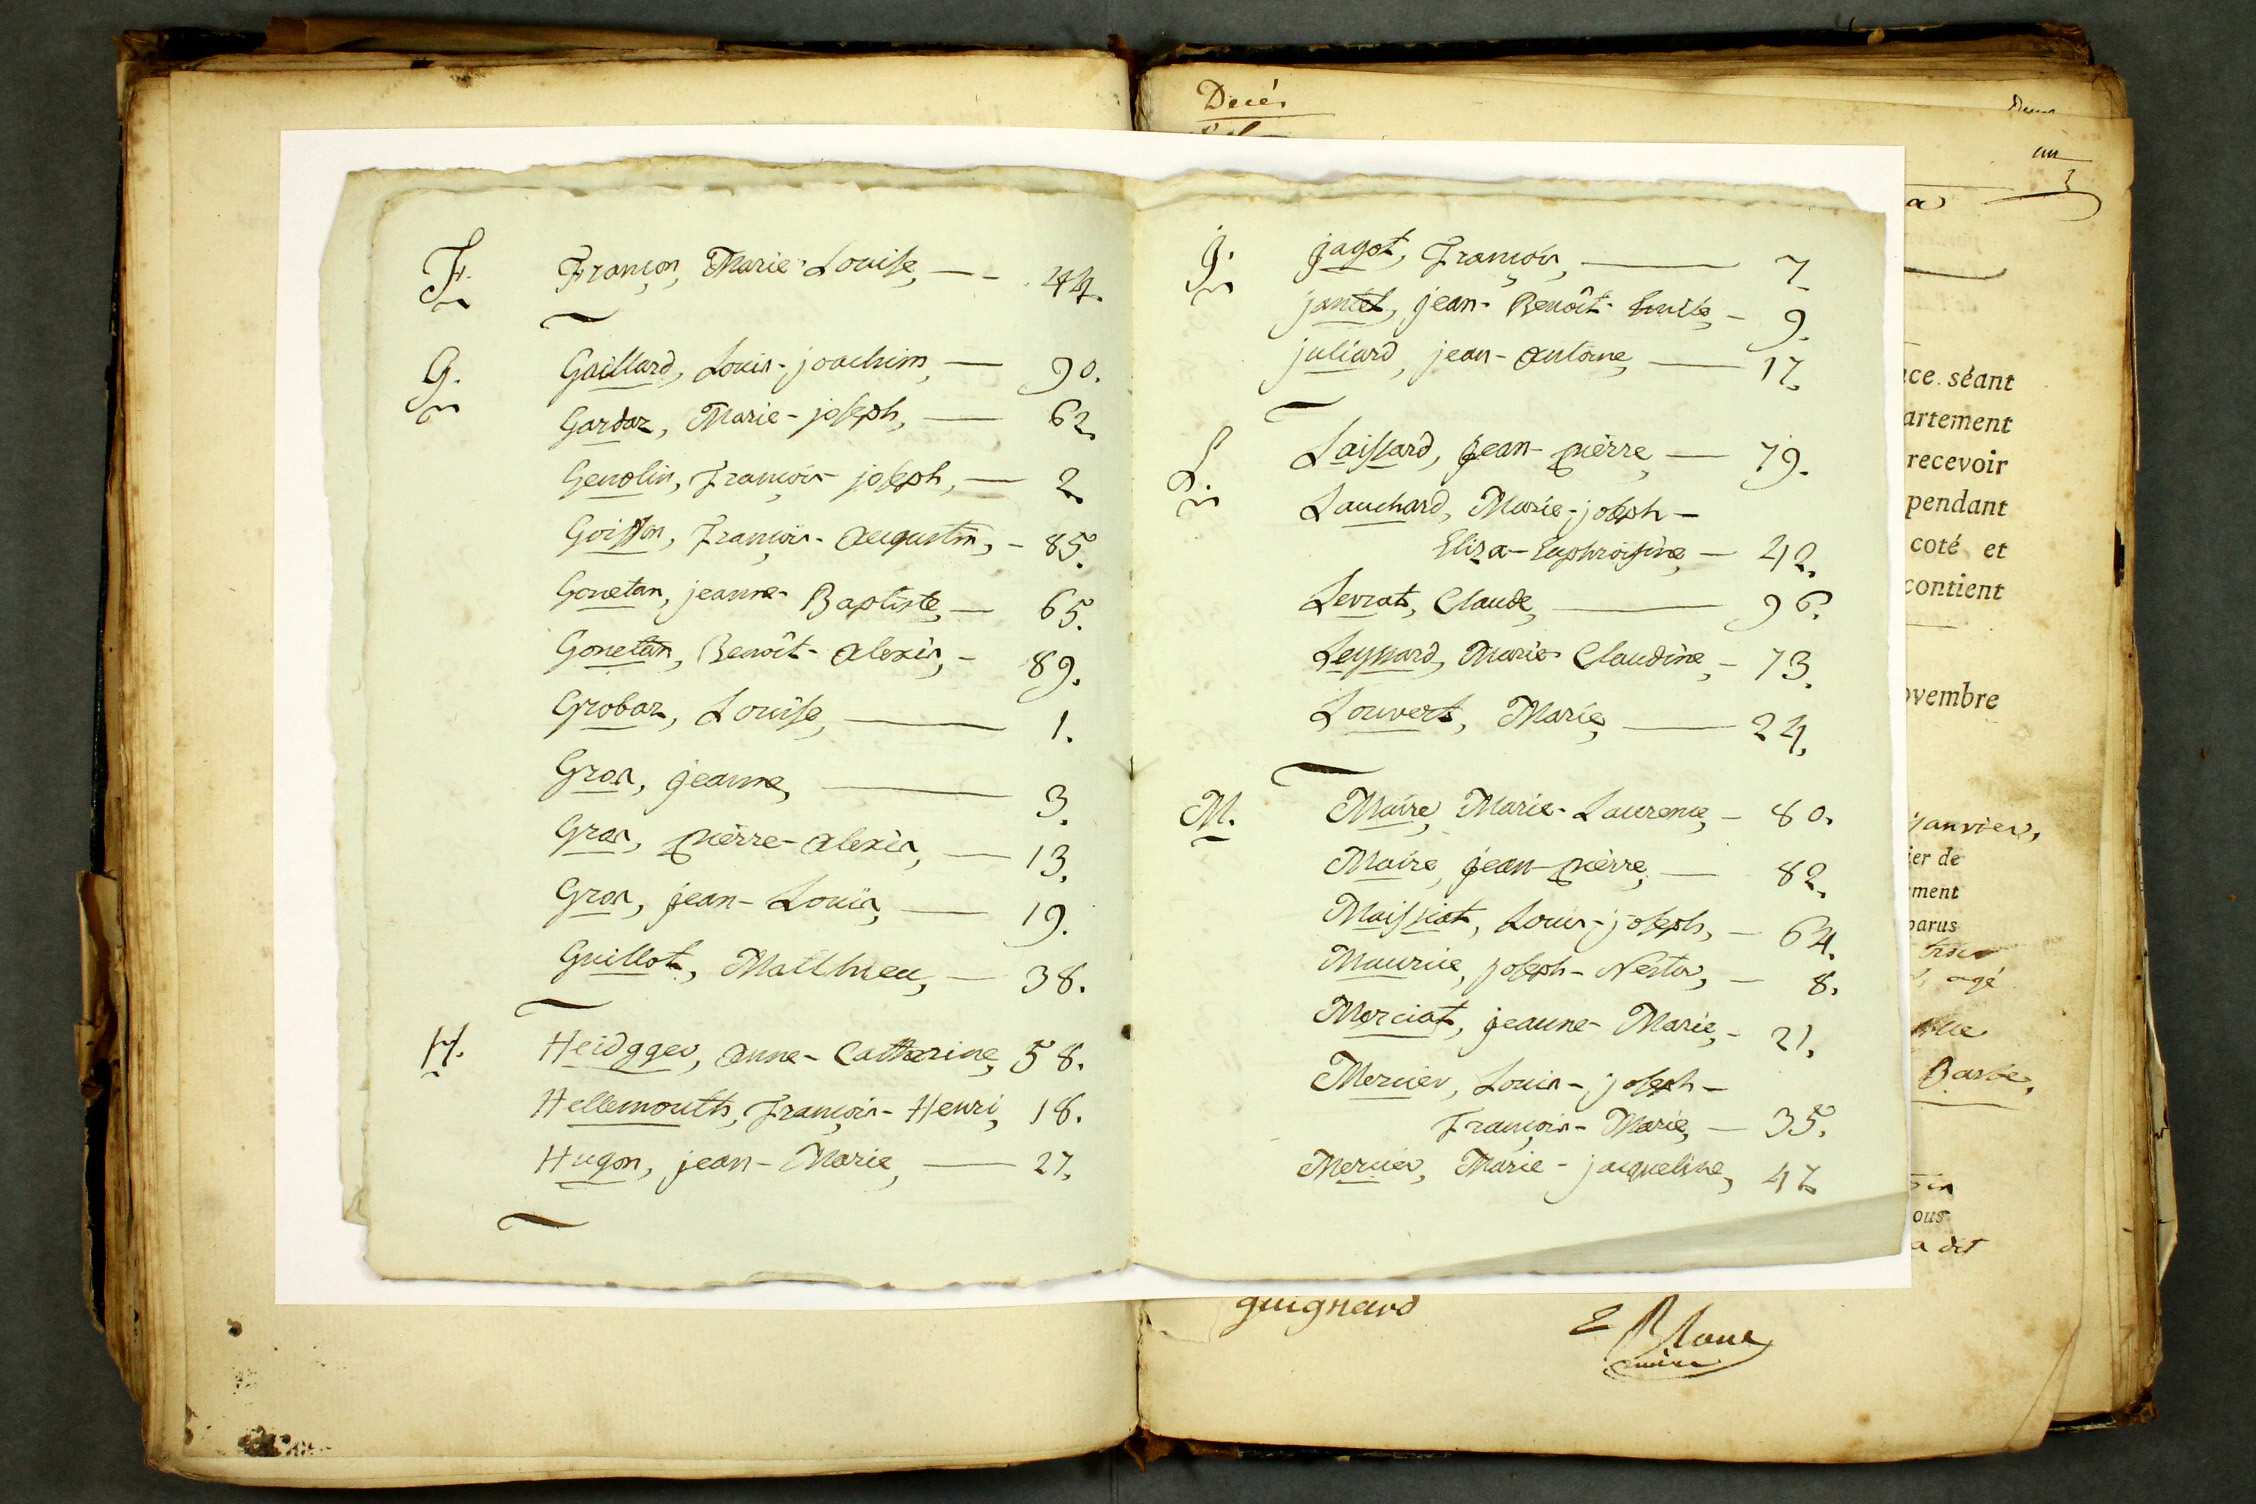 F. Françon, Marie-Louise, — - 44.
G. Gaillard, Louis-joachim, — 90.
Gardaz, Marie-joseph, — 62.
Genolin, François-joseph, — 2.
Goiffon, François-Augustin, - 85.
Gonetan, jeanne-Baptiste, — 65.
Gonetan, Benoît-Alexis, - 89.
Grobaz, Louise, — 1.
Gros, jeanne, — 3.
Gros, pierre-Alexis, — 13.
Gros, jean-Louis, — 19.
Guillot, Matthieu, — 38.
H. Heidgger, Anne-Catherine, 58.
Hellemouth, François-Henri, 18.
Hugon, jean-Marie, — 27.
Décés
un
a
J. jagot, François, — 7.
jantet, jean-Benoît- - 9.
juliard, jean-Antoine, — 17.
L. Laissard, jean-pierre, — 79.
Lauchard, Marie-joseph-
Eliza-Euphroisine, — 42.
Levrat, Claude, — 96.
Leyssard, Marie Claudine, - 73.
Louvert, Marie, — 24.
M. Maire, Marie-Laurence, - 80.
Maire, jean-pierre, — 82.
Maissiat, Louis-joseph, - 64.
Maurice, joseph-Nestor, - 8.
Merciat, jeanne-Marie, - 21.
Mercier, Louis-joseph-
François-Marie, — 35.
Mercier, Marie-jacqueline, 47.
nce séant
artement
recevoir
pendant
coté et
contient
ovembre
janvier,
ier de
ement
parus
agé
Barbe,
ous
a dit
guignard